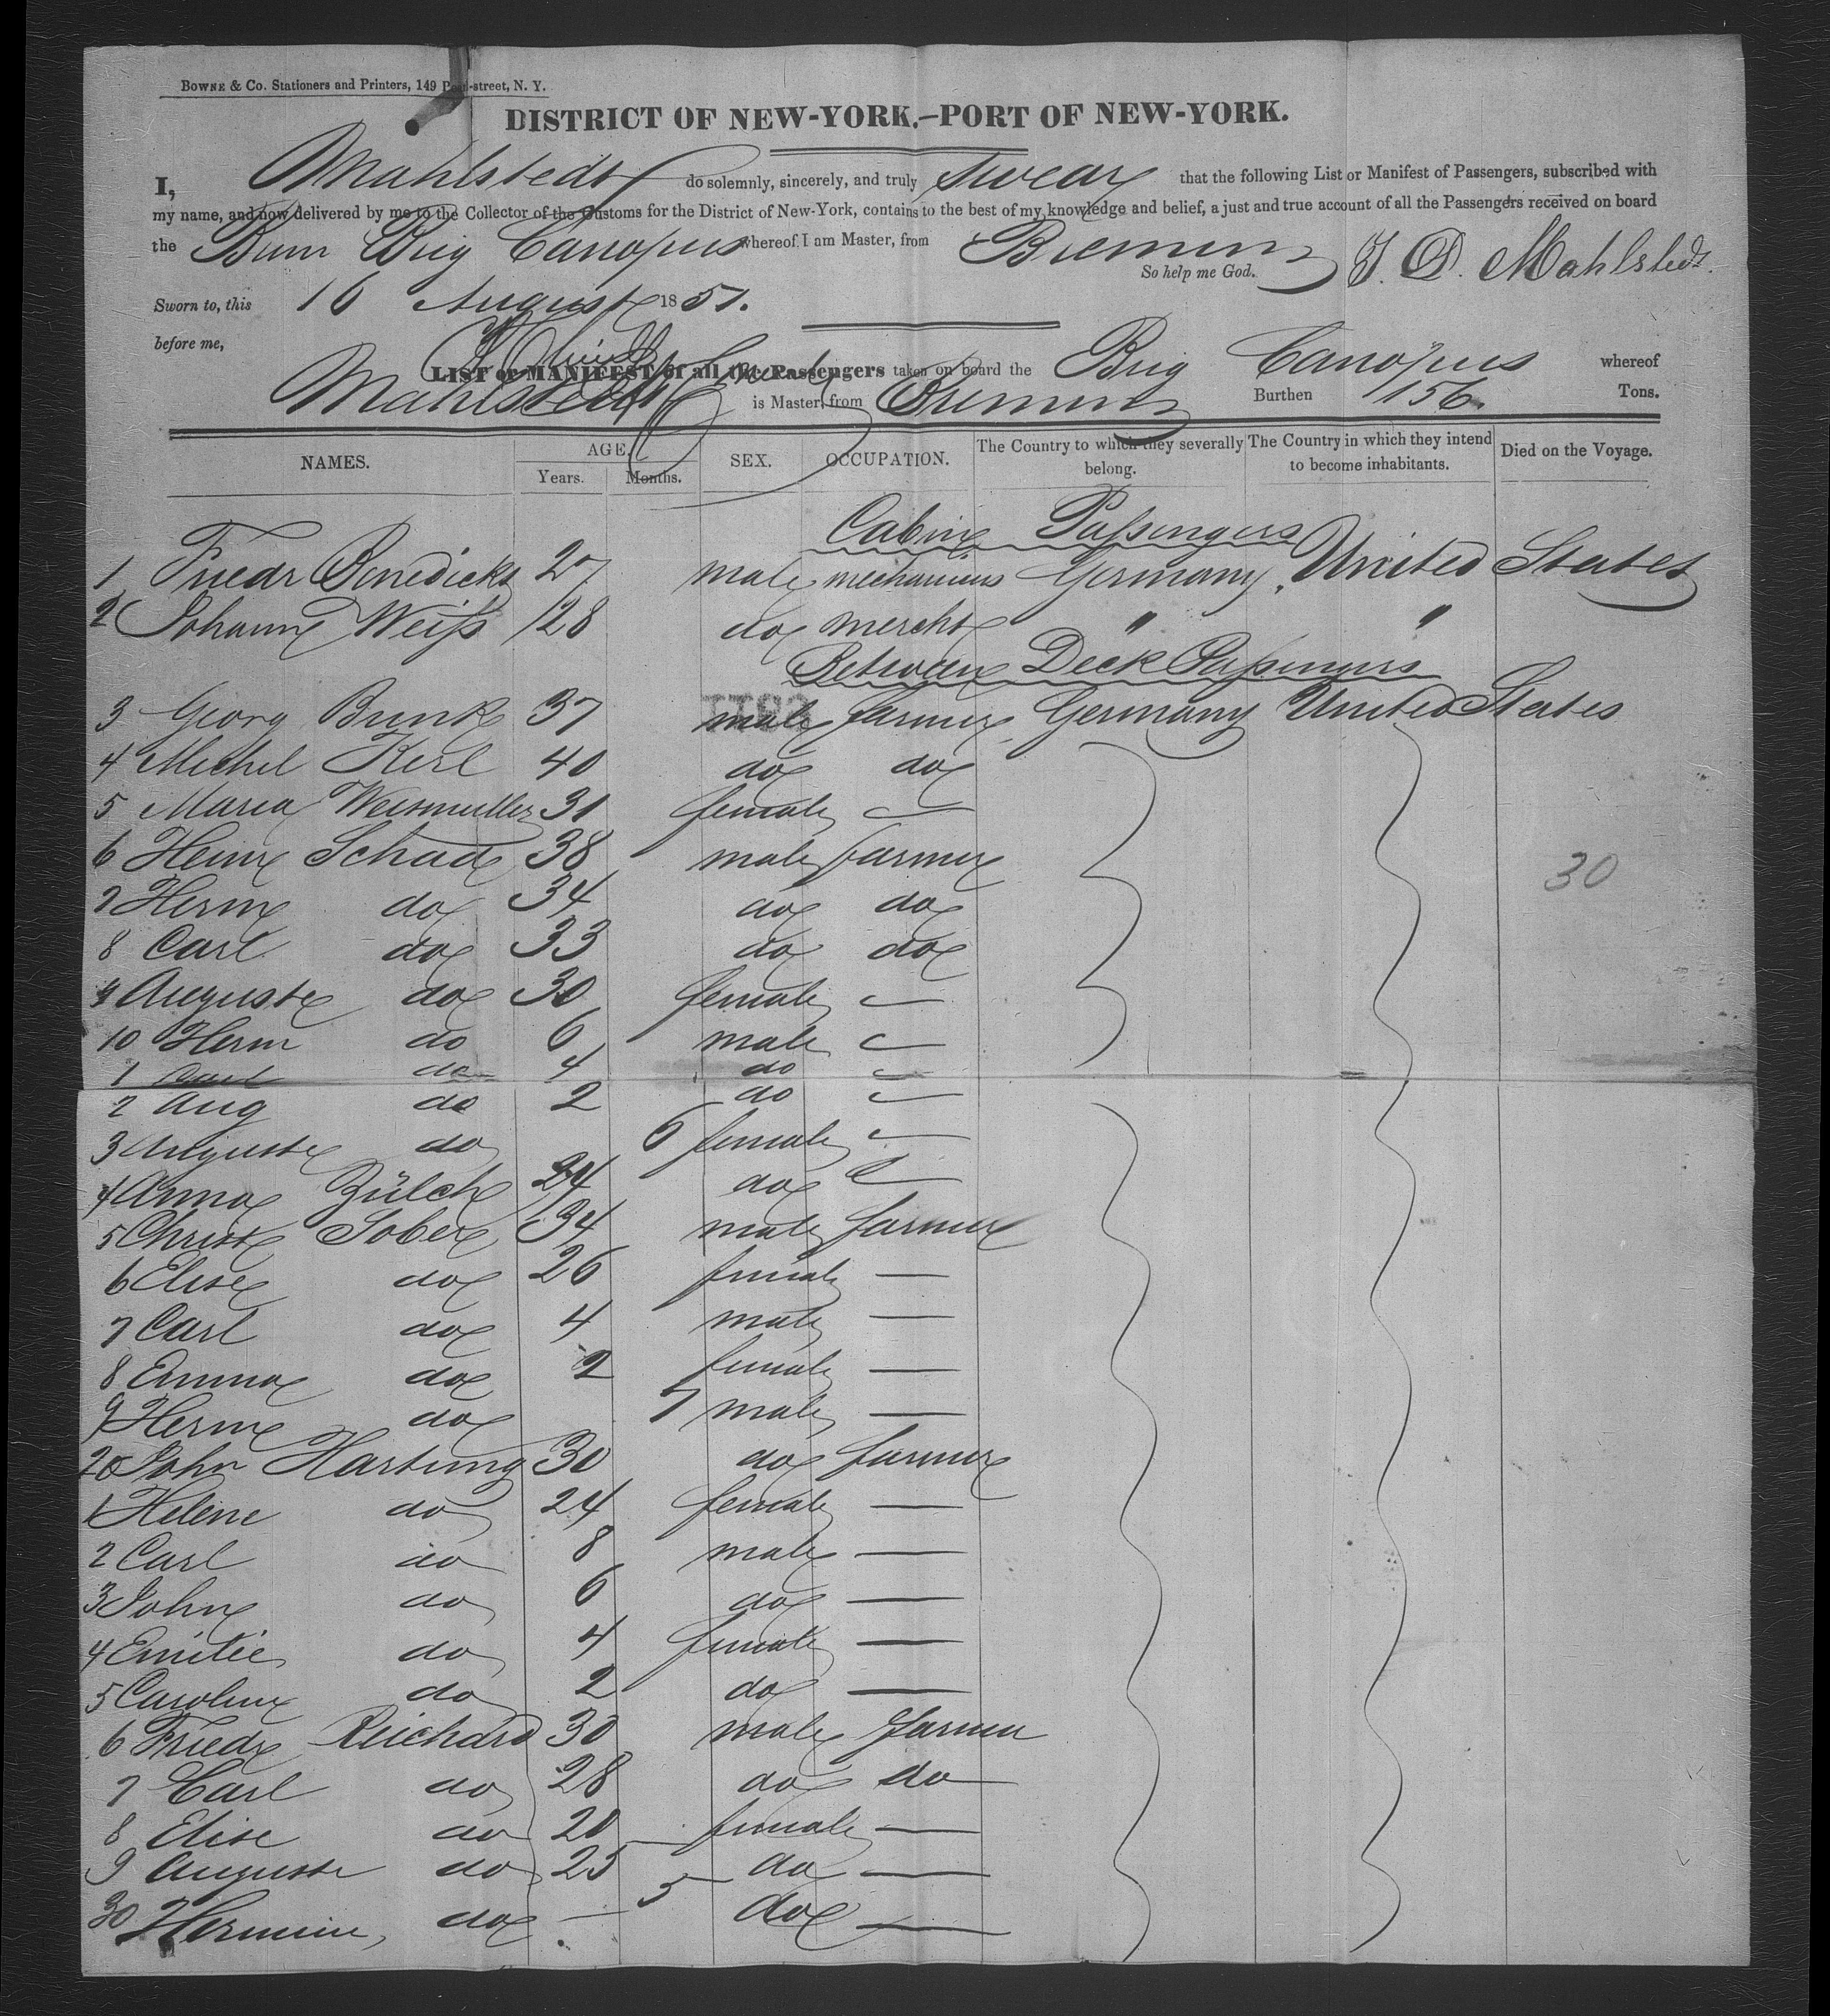 BOWNE & Co. Stationers and Printers, 149 Pearl-street, N. Y.
DISTRICT OF NEW-YORK.—PORT OF NEW-YORK.
I, Mahlstedt do solemnly, sincerely, and truly swear that the following List or Manifest of Passengers, subscribed with
my name, and now delivered by me to the Collector of the Customs for the District of New-York, contains to the best of my knowledge and belief, a just and true account of all the Passengers received on board
the Brem Brig Canopus whereof I am Master, from Bremen
So help me God. J. D. Mahlstedt.
Sworn to, this 16 August 1851.
before me,
LIST or MANIFEST of all the Passengers taken on board the Brig Canopus whereof
Mahlstedt is Master, from Bremen Burthen 156. Tons.
NAMES. AGE. Years. Months. SEX. OCCUPATION. The Country to which they severally belong. The Country in which they intend to become inhabitants. Died on the Voyage.
Cabin Passengers
1 Friedr Benedicks 27 male mechanicus Germany United States
2 Johann Weiss 28 do mercht " "
Between Deck Passengers
3 Georg Brunk 37 male farmer Germany United States
4 Michel Kerl 40 do do
5 Maria Weismuller 31 female —
6 Heinr Schade 38 male farmer
30
7 Herm do 34 do do
8 Carl do 33 do do
9 Auguste do 30 female —
10 Herm do 6 male —
1 Carl do 4 do —
2 Aug do 2 do —
3 Auguste do 6 female —
4 Anna Zülch 24 do —
5 Christ Sober 34 male farmer
6 Elise do 26 female —
7 Carl do 4 male —
8 Emma do 2 female —
9 Herm do 7 male —
20 John Hartung 30 do farmer
1 Helene do 24 female —
2 Carl do 8 male —
3 John do 6 do —
4 Emilie do 4 female —
5 Caroline do 2 do —
6 Friedr Reichard 30 male farmer
7 Carl do 28 do do
8 Elise do 20 — female —
9 Auguste do 25 do —
30 Hermine do — 5 do —